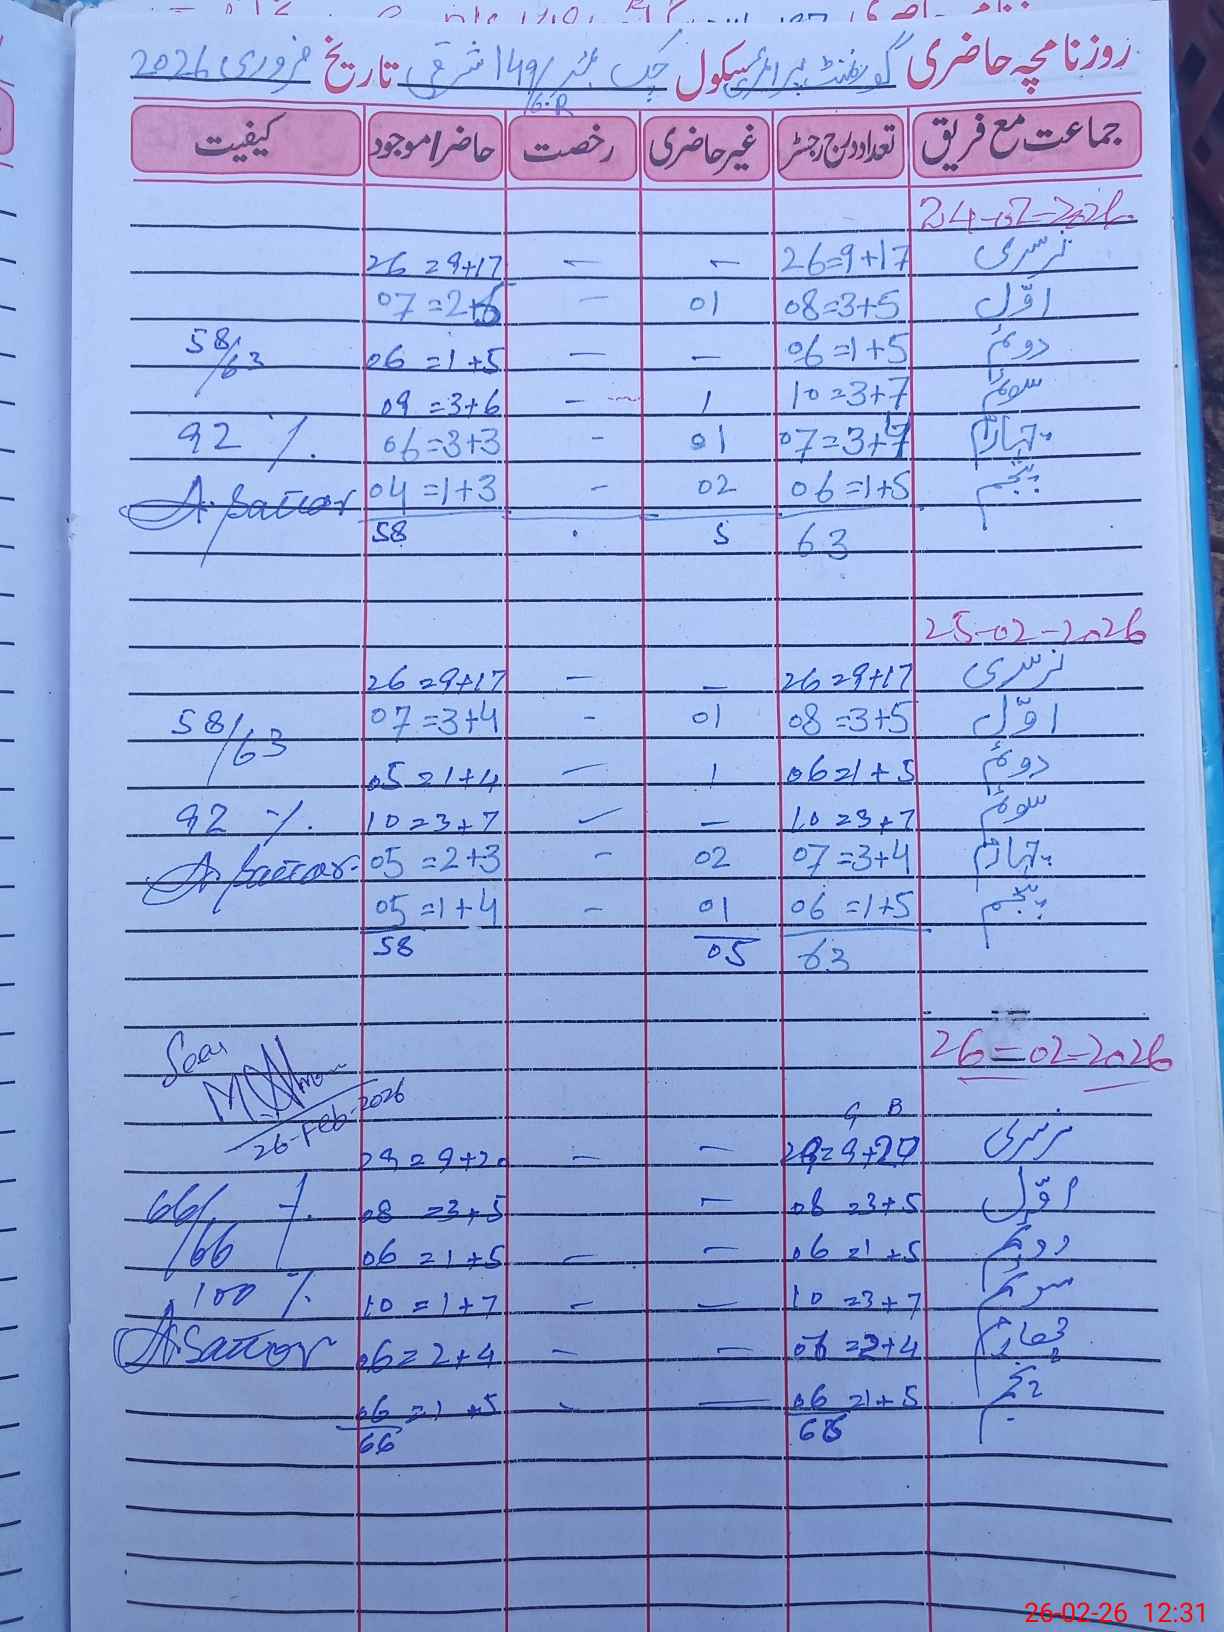 روزنامچہ حاضری گورنمنٹ پرائمری سکول چک نمبر 149/16.R شرقی تاریخ فروری 2026
جماعت مع فریق تعداد درج رجسٹر غیر حاضری رخصت حاضر/موجود کیفیت
24-02-2026
نرسری 26=9+17 - - 26=9+17
اوّل 08=3+5 01 - 07=2+5
دوئم 06=1+5 - - 06=1+5 58/63
سوئم 10=3+7 1 - 09=3+6
چہارم 07=3+4 01 - 06=3+3 92 %.
پنجم 06=1+5 02 - 04=1+3 A.Sattar
63 5 . 58
25-02-2026
نرسری 26=9+17 - - 26=9+17
اوّل 08=3+5 01 - 07=3+4 58/63
دوئم 06=1+5 1 - 05=1+4
سوئم 10=3+7 - - 10=3+7 92 %.
چہارم 07=3+4 02 - 05=2+3 A.Sattar
پنجم 06=1+5 01 - 05=1+4
63 05 58
26-02-2026
Seen
26-Feb-2026
G B
نرسری 29=9+20 - - 29=9+20
اوّل 08=3+5 - 08=3+5 66/66 %.
دوئم 06=1+5 - - 06=1+5
سوئم 10=3+7 - - 10=1+7 100 %.
چہارم 06=2+4 - - 06=2+4 A.Sattar
پنجم 06=1+5 - - 06=1+5
66 66
26-02-26 12:31